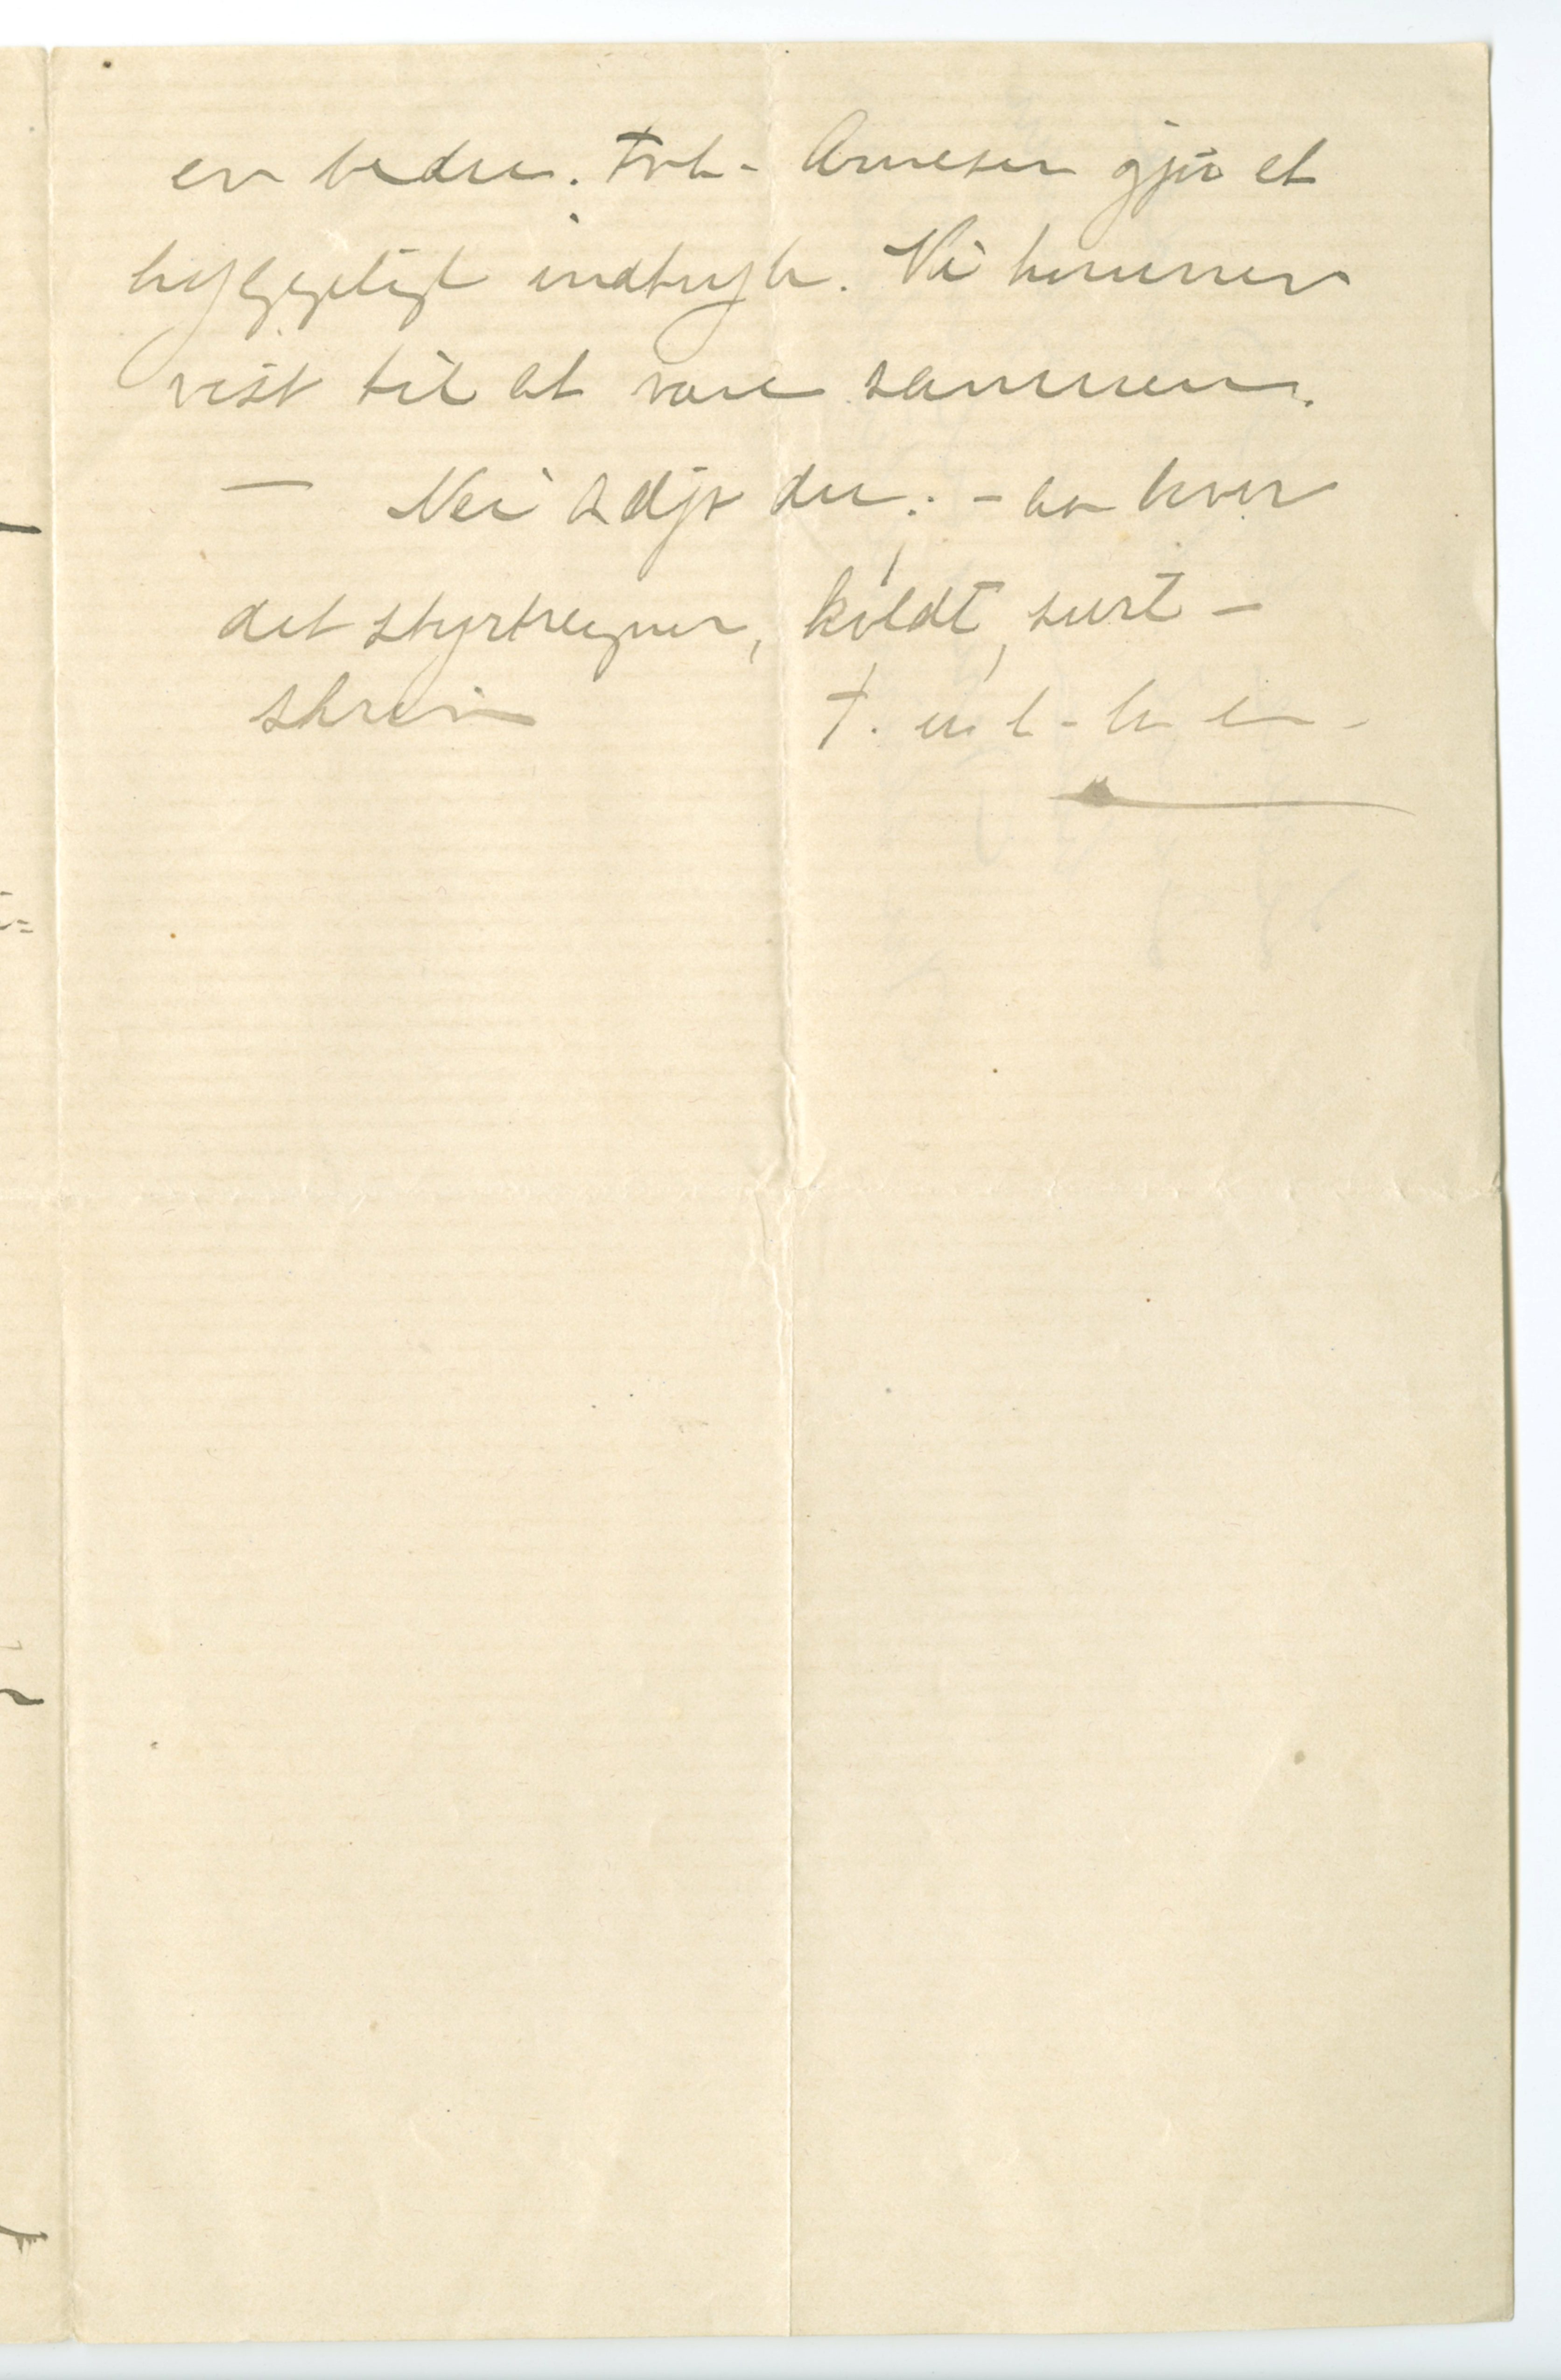 er bedre. Frk. Arnesen gjør et
hyggeligt indtryk. Vi kommer
vist til at være sammen.
— Nei adjø du. – hvor
det styrtregner, koldt, surt –
skriv